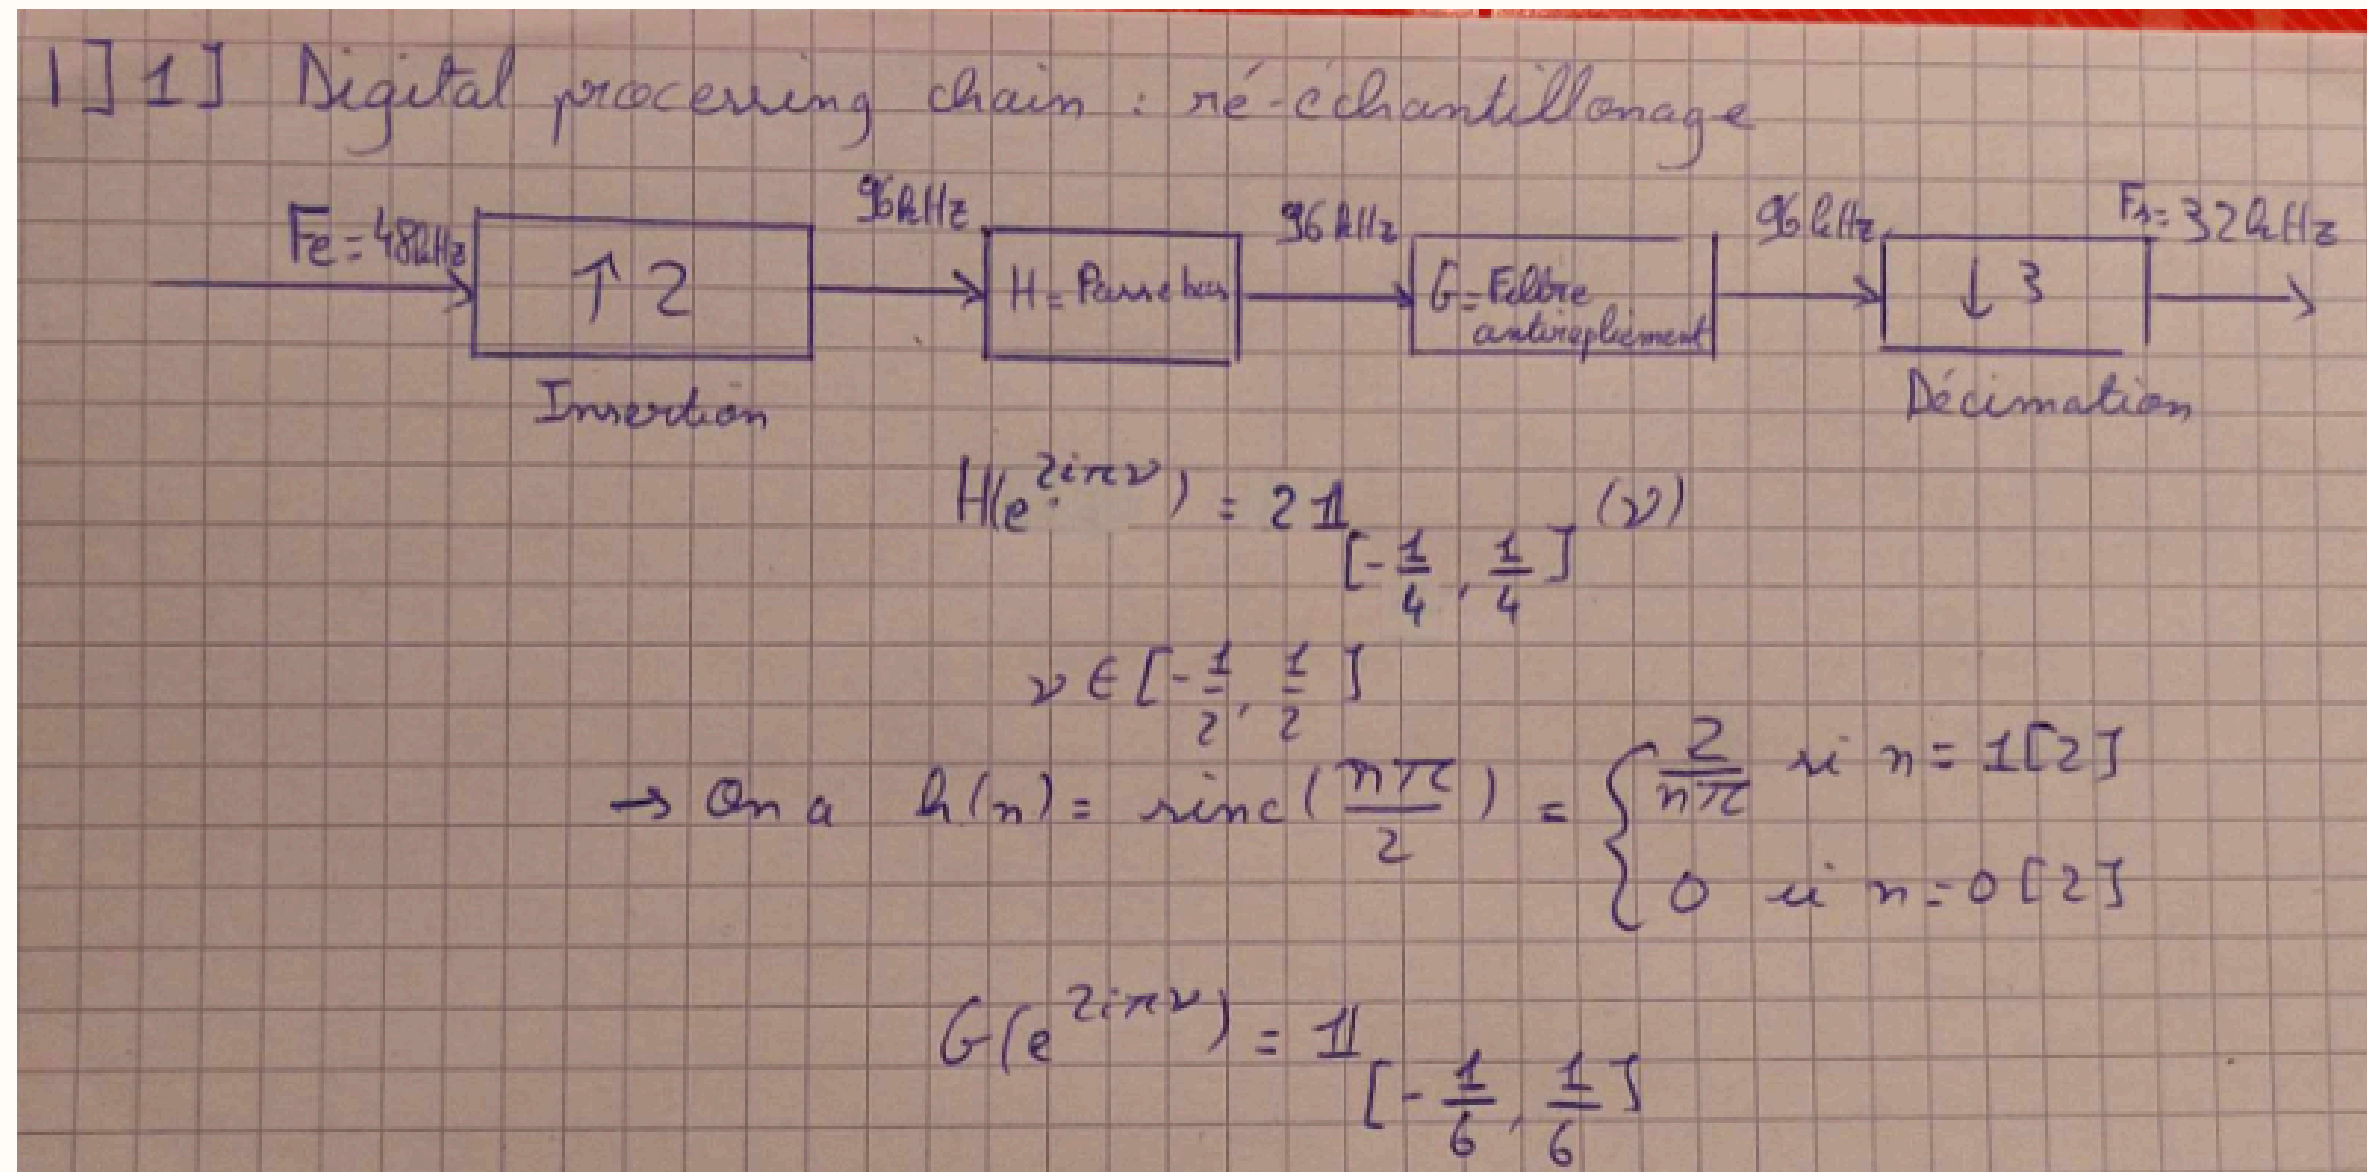 I] 1] Digital processing chain : ré-échantillonage
Fe = 48kHz
↑ 2
Insertion
96kHz
H = Passe bas
96 kHz
G = Filtre
antirepliement
96 kHz
↓ 3
Décimation
Fs = 32kHz
H(e^{2iπν}) = 2 𝟙_{[-1/4, 1/4]} (ν)
ν ∈ [-1/2, 1/2]
→ On a h(n) = sinc(nπ/2) = { 2/nπ si n = 1[2]
0 si n = 0[2]
G(e^{2iπν}) = 𝟙_{[-1/6, 1/6]}